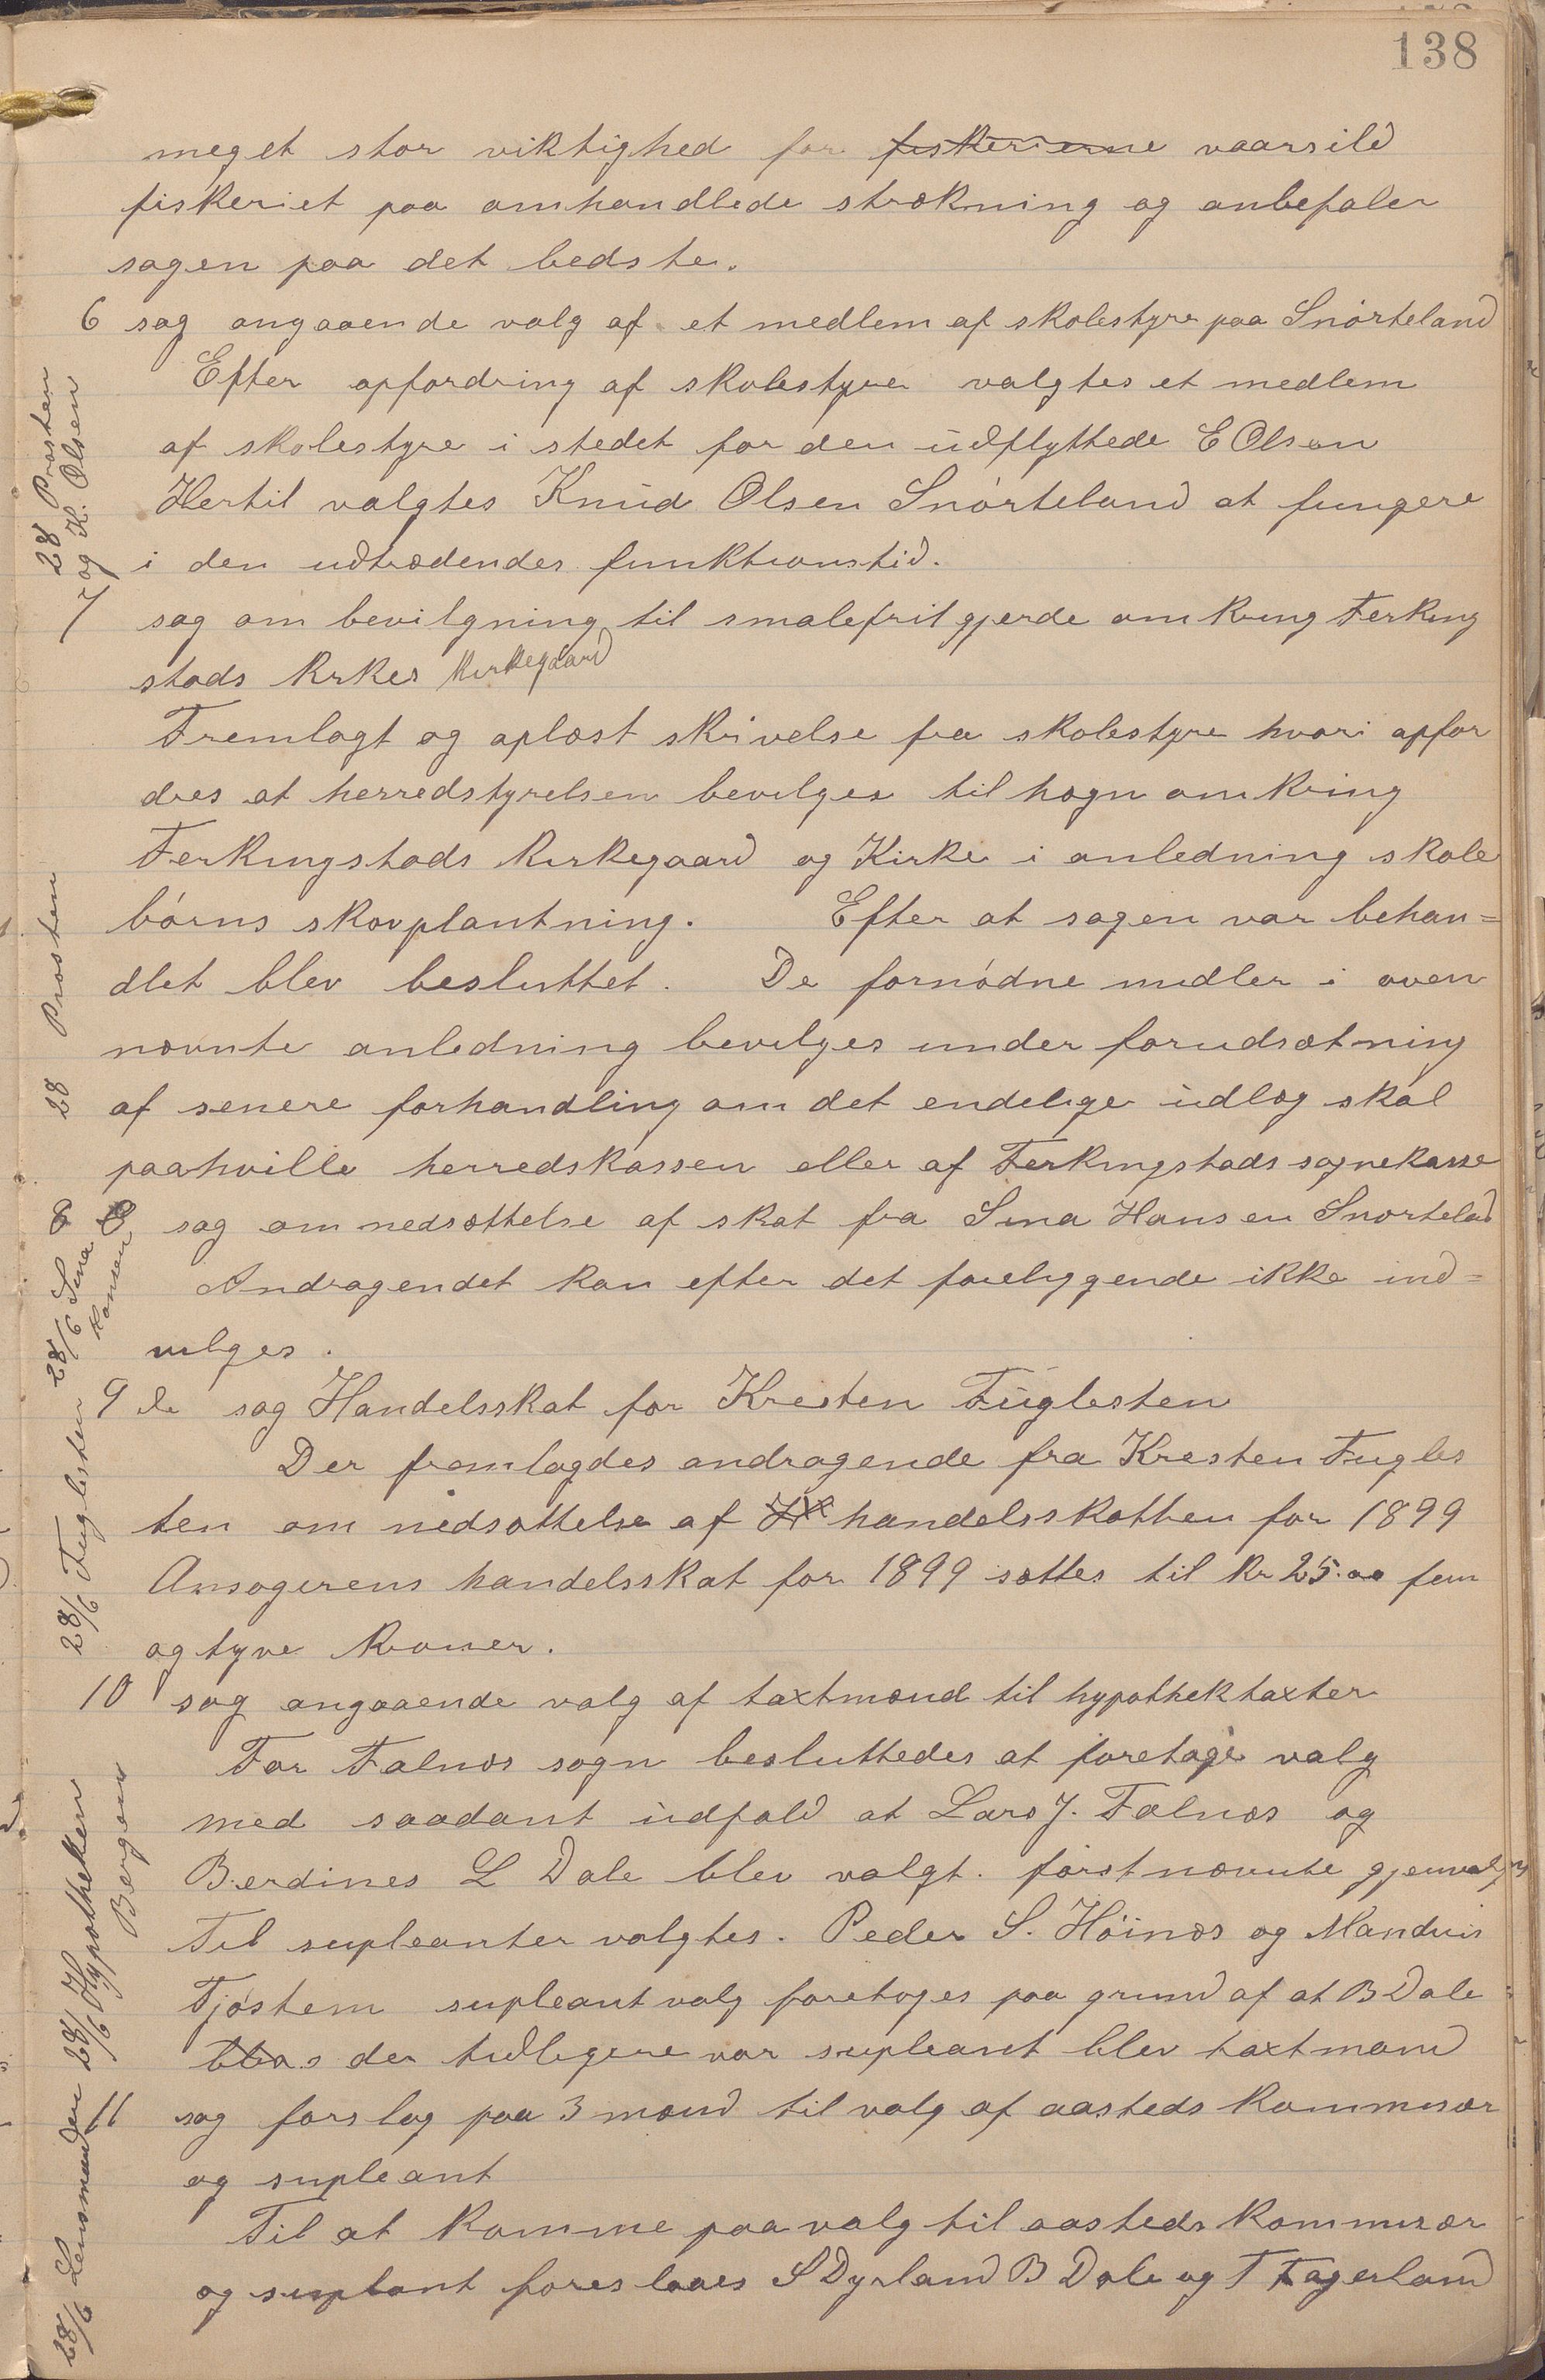 138
meget stor viktighed for fiskerierne vaarsild
fiskeriet paa omhandlede strækning og anbefaler
sagen paa det bedste.
6 sag angaaende valg af et medlem af skolestyre paa Snørteland
Efter opfordring af skolestyre valgtes et medlem
af skolestyre i stedet for den udflyttede E Olsen
Hertil valgtes Knud Olsen Snørteland at fungere
i den udtrædendes funktionstid.
28 Prosten
og K. Olsen
7 sag om bevilgning til smalefrit gjerde omkring Ferking
stads kirkes kirkegaard
Fremlagt og oplæst skrivelse fra skolestyre hvori opfor
dres at herredstyrelsen bevilges til hægn omkring
Ferkingstads kirkegaard og Kirke i anledning skole
børns skovplantning. Efter at sagen var behan=
dlet blev besluttet. De fornødne midler i oven
nævnte anledning bevilges under forudsætning
af senere forhandling om det endelige udlæg skal
paahville herredskassen eller af Ferkingstads sognekasse
28 Prosten
8 sag om nedsættelse af skat fra Sina Hansen Snørtelad
Andragendet kan efter det foreliggende ikke ind=
vilges.
28/6 Sina
Hansen
9 de sag Handelsskat for Kresten Fuglesten
Der fremlagdes andragende fra Kresten Fugles
ten om nedsættelse af handelsskatten for 1899
Ansøgerens handelsskat for 1899 sættes til kr 25.00 fem
og tyve kroner.
28/6 Fuglesten
10 sag angaaende valg af taxtmænd til hypothektaxter
For Falnæs sogn besluttedes at foretage valg
med saadant udfald at Lars J. Falnæs og
Berdines L Dale blev valgt. førstnævnte gjenvalg
Til supleanter valgtes. Peder S. Høinæs og Mandius
Tjøstem supleantvalg foretoges paa grund af at B Dale
der tidligere var supleant blev taxtmand
28/6 Hypotheken
Bergen
11 sag forslag paa 3 mænd til valg af aasteds kommisær
og supleant
Til at komme paa valg til aasteds kommisær
og suplant foreslaaes S Dyrland B Dale og T Fagerland
28/6 Lensmanden